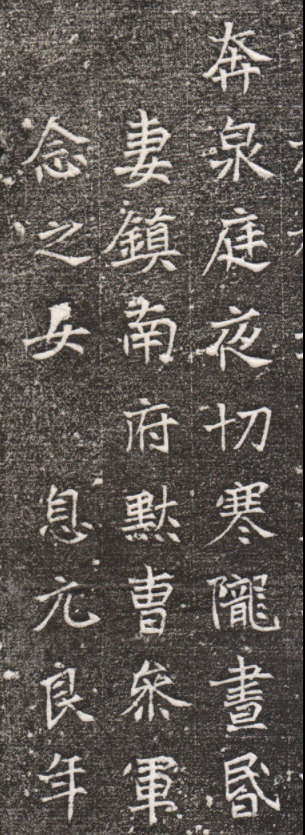 奔泉庭夜切寒隴晝昏
妻鎮南府默曹參軍
念之女 息元良年